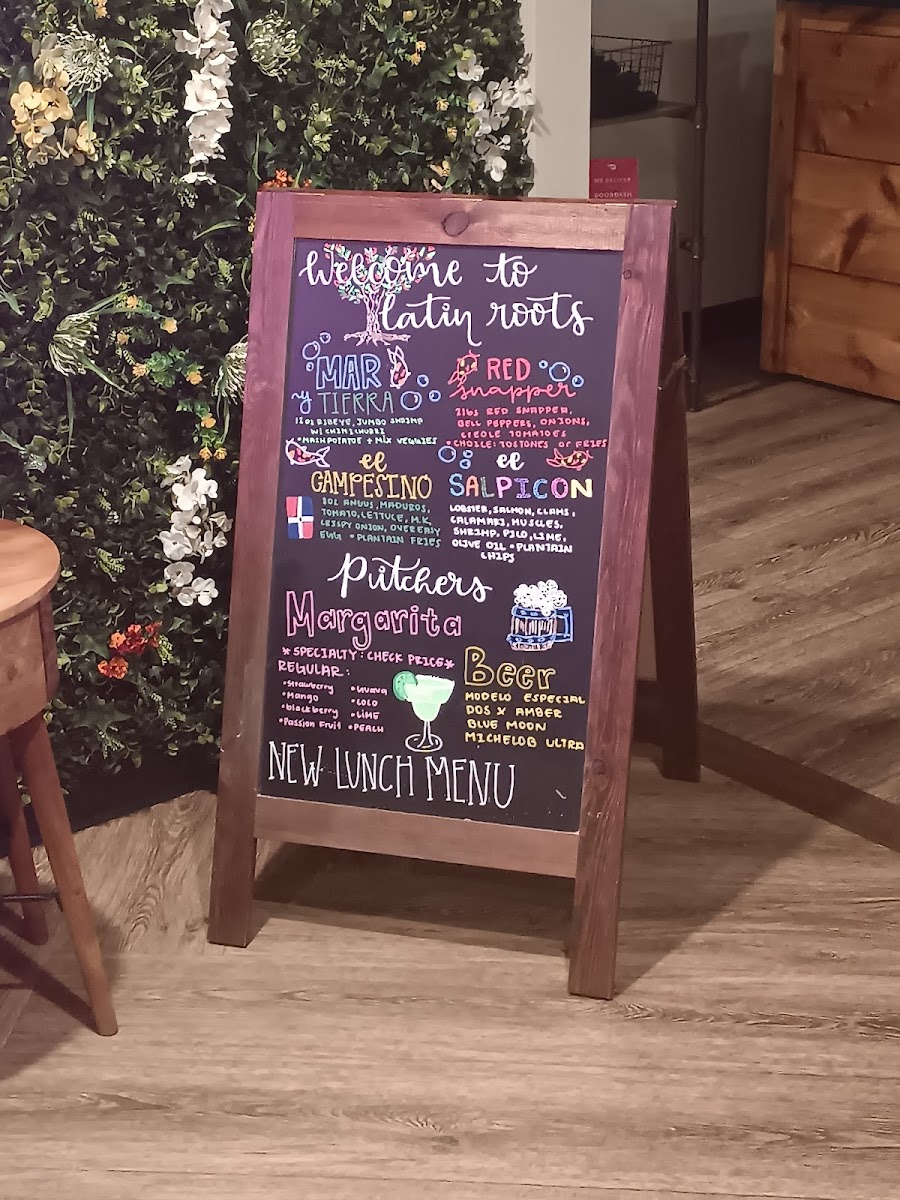 WE DELIVER
DOORDASH
Welcome to
latin roots
MAR
y TIERRA
RIBEYE, JUMBO SHRIMP
W/ CHIMICHURRI
•MASH POTATOE + MIX VEGGIES
RED
snapper
2lbs RED SNAPPER,
BELL PEPPERS, ONIONS,
CREOLE TOMATOES
•CHOICE: TOSTONES OR FRIES
el
CAMPESINO
8OZ ANGUS, MADUROS,
TOMATO, LETTUCE, M.K,
CRISPY ONION, OVER EASY
EGG • PLANTAIN FRIES
el
SALPICON
LOBSTER, SALMON, CLAMS,
CALAMARI, MUSCLES,
SHRIMP, PICO, LIME,
OLIVE OIL • PLANTAIN
CHIPS
Pitchers
Margarita
*SPECIALTY: CHECK PRICE*
REGULAR:
•Strawberry •Guava
•Mango •COCO
•blackberry •LIME
•Passion Fruit •PEACH
Beer
MODELO ESPECIAL
DOS X AMBER
BLUE MOON
MICHELOB ULTRA
NEW LUNCH MENU